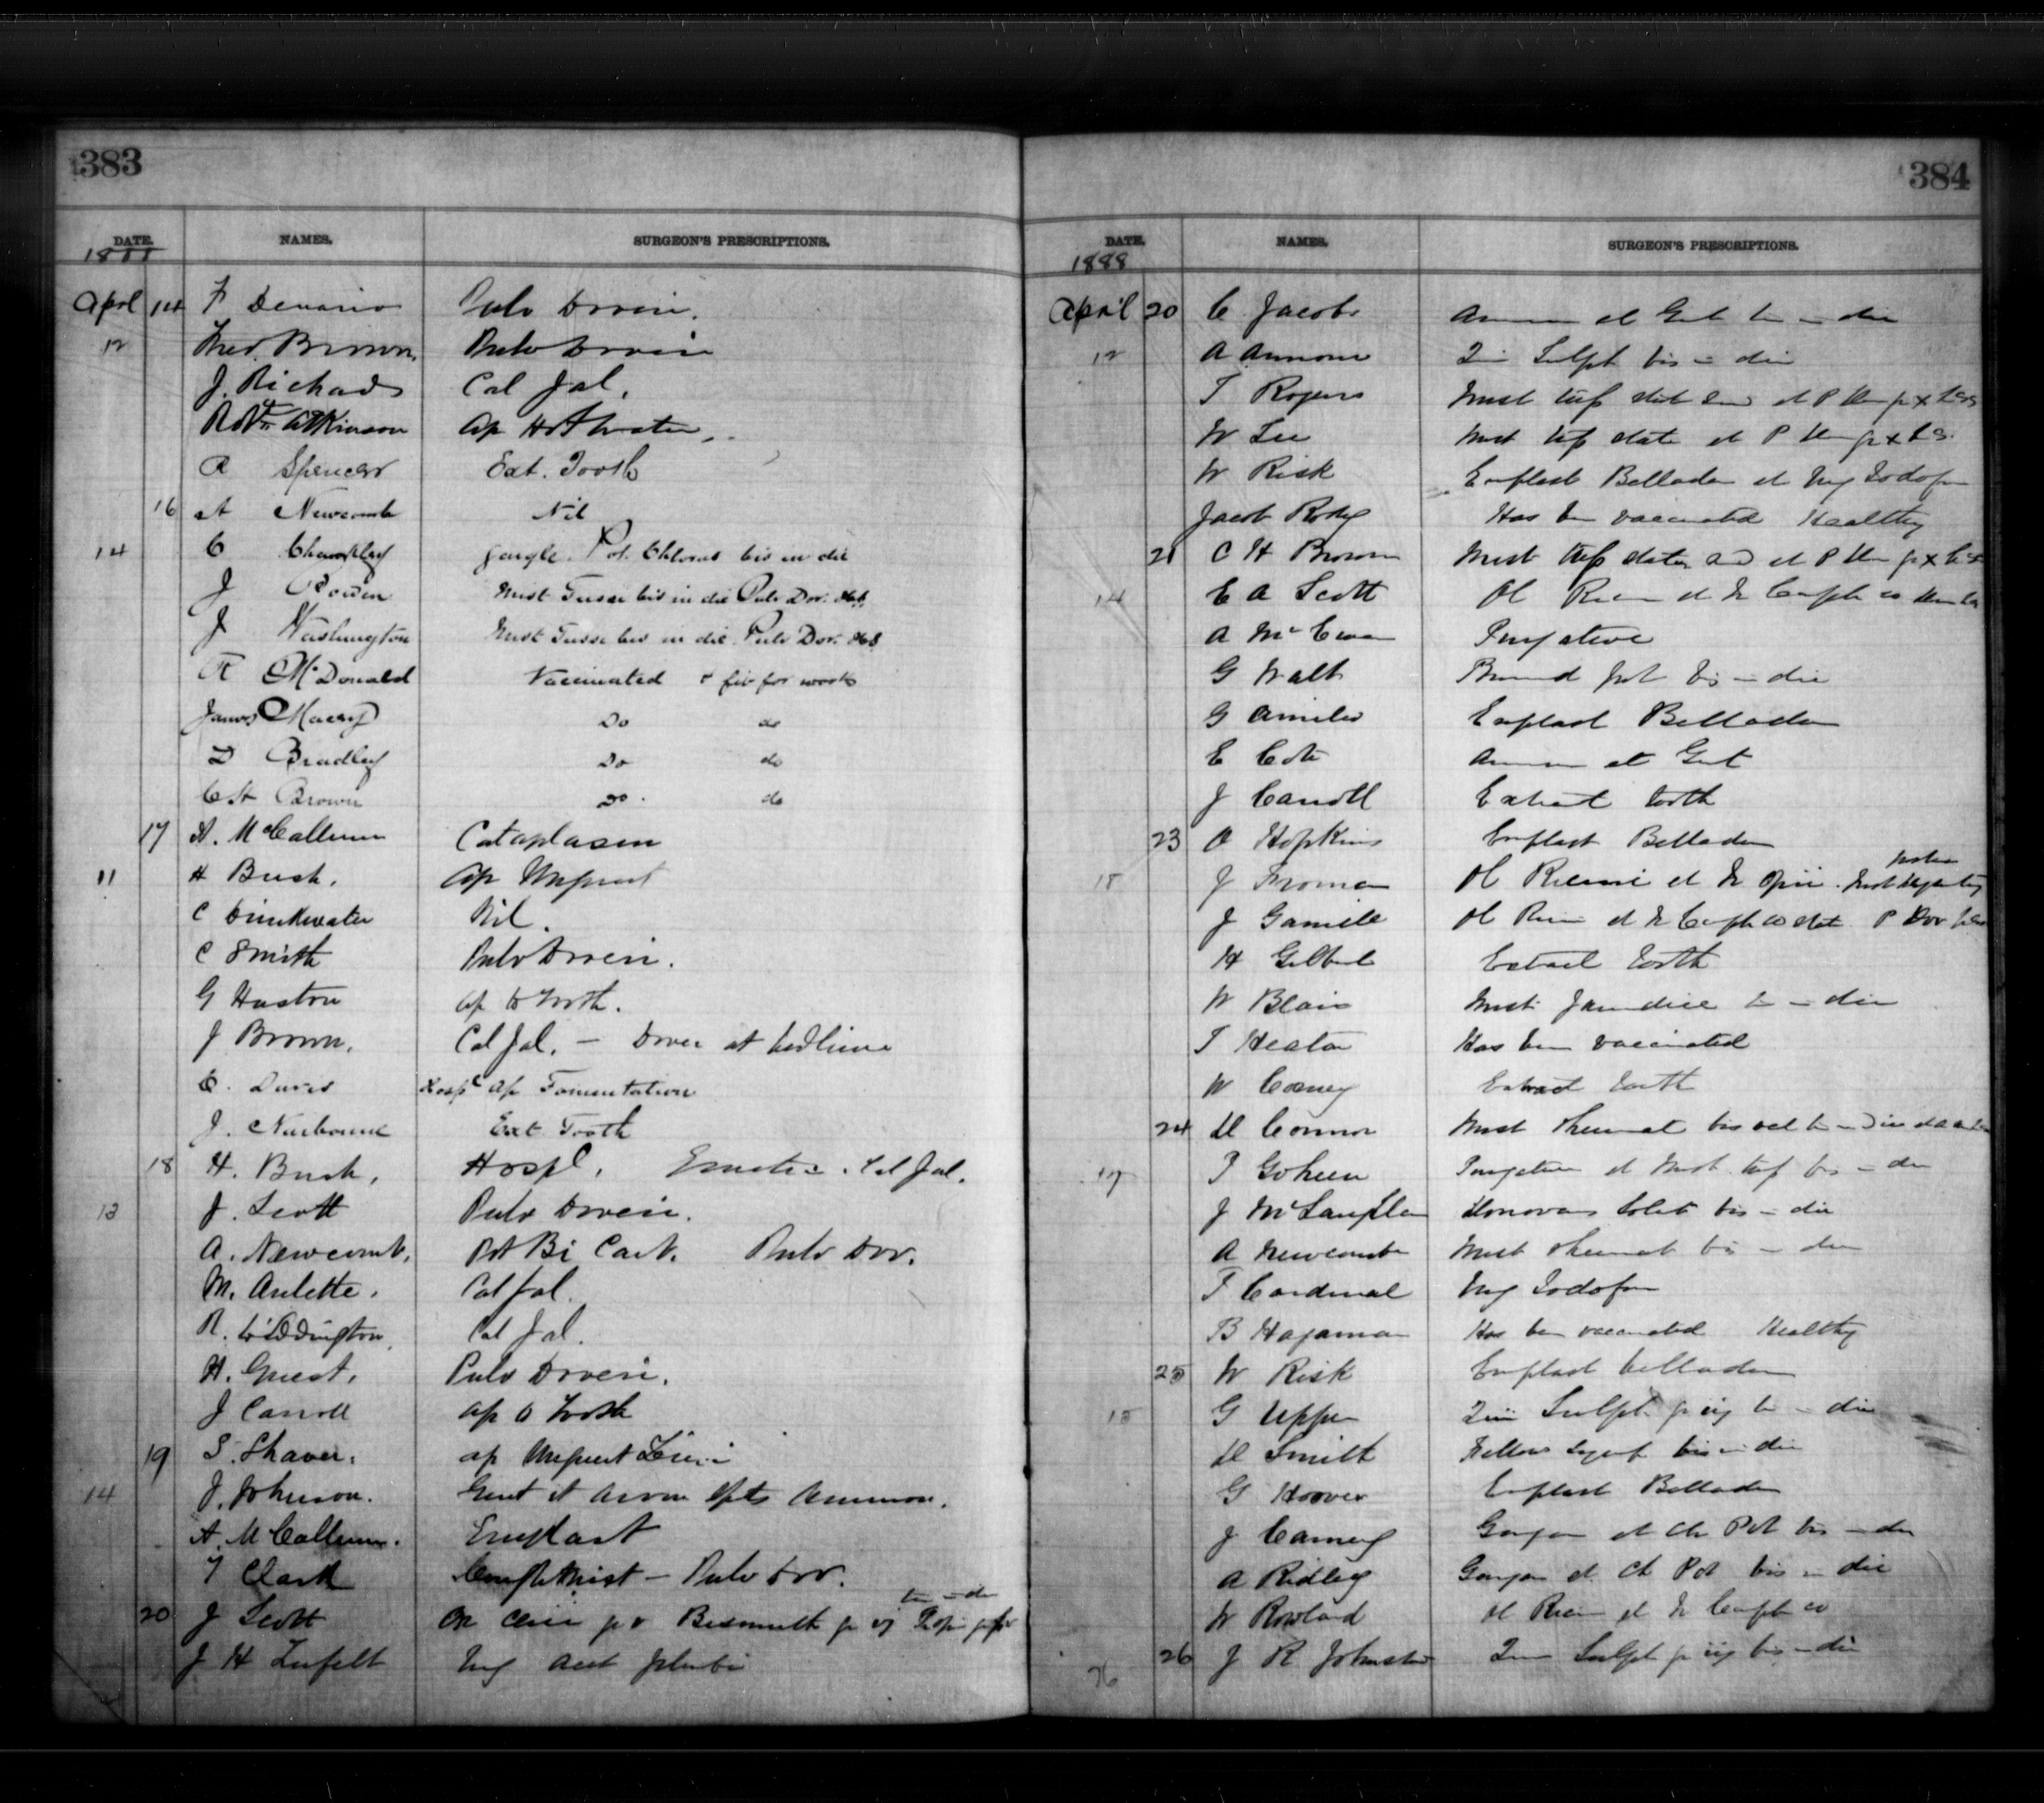 383
DATE. NAMES. SURGEON'S PRESCRIPTIONS.
1888
April 14 F Denario Pulv Doveri.
12 Fred. Brown. Pulv Doveri
J. Richards Cal Jal.
Robt Atkinson Ap Hot water
R Spencer Ext. Tooth
16 A Newcomb Nil
14 C Chumpley gargle. Pot. Chloras bis in die
J Bowen Mist Tussi bis in die Pulv Dov.
J Washington Mist Tussi bis in die Pulv Dov.
R McDonald Vaccinated & fit for work
James Do do
D Bradley Do do
C H Brown Do. do
17 A. McCallum Cataplasm
11 H Bush. Ap Unguent
C Drinkwater Nil.
C Smith Pulv Doveri.
G Huston Ap to Tooth.
J Brown. Cal Jal. — Dover at bedtime
C. Davis Hospl Ap Fomentation
J. Narbonne Ext Tooth
18 H. Bush, Hospl. Emetic. Cal Jal.
13 J. Scott Pulv Doveri.
A. Newcomb. Pot Bi Carb. Pulv Dov.
M. Aulette. Cal Jal.
R. Widdington Cal Jal.
H. Guest. Pulv Doveri.
J Carroll Ap to Tooth
19 S. Shaver. Ap Unguent Zinci
14 J. Johnson. Gent et Arom Spts Ammon.
A. McCallum. Emplast
T Clark Cough Mist — Pulv Dov.
20 J Scott Bismuth gr
J H Zufelt Ung Acet Plumbi
384
DATE. NAMES. SURGEON'S PRESCRIPTIONS.
1888
April 20 C. Jacobs Ammon et Gent in die
12 A Ammon Quin Sulph bis in die
T Rogers Mist tuss stat et P
W Lee Mist tuss stat et P
W Risk Emplast Bellad et Ung Iodoform
Jacob Has been vaccinated Healthy
21 C H Brown Mist tuss stat et P
14 E A Scott Ol Ricini et Tr Camph co
A McEwan Purgative
G Walt Bromid Pot bis in die
G Emplast Bellad
E Cote Ammon et Gent
J Carroll Extract tooth
23 O Hopkins Emplast Bellad
18 J Froman Ol Ricini et Tr Opii.
J Gamble Ol Ricini et Tr Camph co stat P Dov
H Gilbert Extract tooth
W Blair Mist Jaundice in die
T Heaton Has been vaccinated
W Cooney Extract tooth
24 D Connor Mist Rheumat bis vel
17 P Goheen Purgative et Mist tuss bis in die
J McLaughlan Donovans Solut bis in die
A Newcombe Mist Rheumat bis in die
F Cardinal Ung Iodoform
B Hagaman Has been vaccinated Healthy
25 W Risk Emplast Bellad
15 G Upper Quin Sulph gr iij in die
D Smith Fellows Syrup bis in die
G Hoover Emplast Bellad
J Carney Gargar et Ch Pot bis in die
A Ridley Gargar et Ch Pot bis in die
W Rowland Ol Ricini et Tr Camph co
26 J R Johnston Quin Sulph gr iij bis in die
76